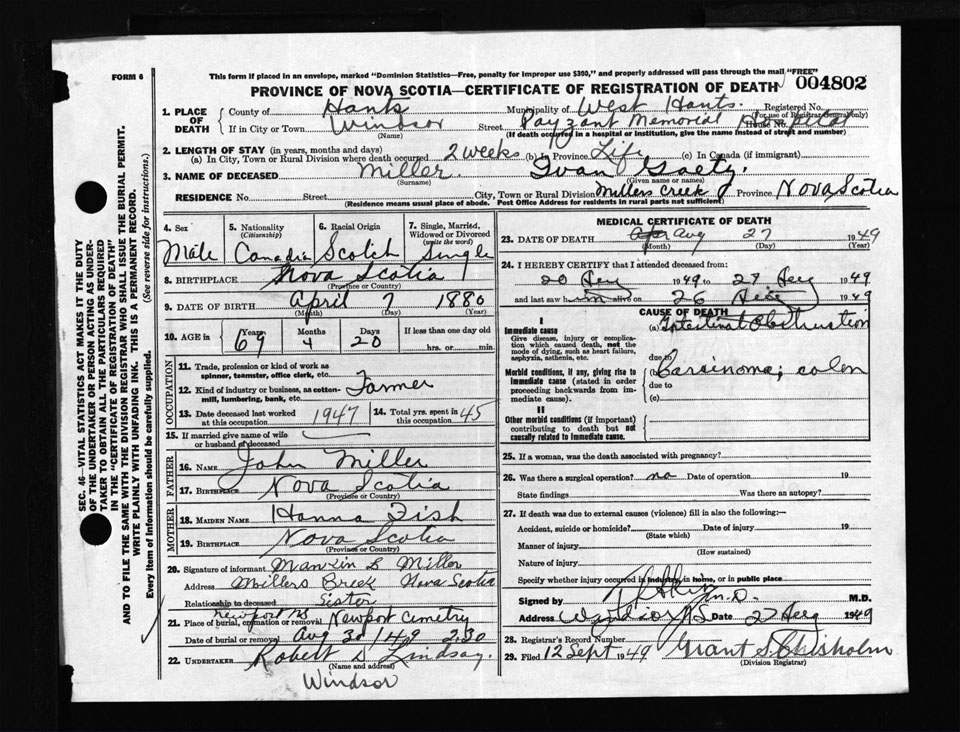 FORM 6
This form if placed in an envelope, marked "Dominion Statistics—Free, penalty for improper use $300," and properly addressed will pass through the mail "FREE"
PROVINCE OF NOVA SCOTIA—CERTIFICATE OF REGISTRATION OF DEATH 004802
1. PLACE OF DEATH
County of Hants Municipality of West Hants. Registered No.
(For use of Registrar General only)
If in City or Town Windsor Street Payzant Memorial Hospital House No.
(Name) (If death occurred in a hospital or institution, give the name instead of street and number)
2. LENGTH OF STAY (in years, months and days)
(a) In City, Town or Rural Division where death occurred 2 weeks (b) In Province Life (c) In Canada (if immigrant)
3. NAME OF DECEASED Miller. Ivan
(Surname) (Given name or names)
RESIDENCE No. Street City, Town or Rural Division Millers Creek Province Nova Scotia
(Residence means usual place of abode. Post Office Address for residents in rural parts not sufficient)
4. Sex 5. Nationality (Citizenship) 6. Racial Origin 7. Single, Married, Widowed or Divorced (write the word)
Male Canadia Scotch Single
8. BIRTHPLACE Nova Scotia
(Province or Country)
9. DATE OF BIRTH April 7 1880
(Month) (Day) (Year)
10. AGE in Years Months Days If less than one day old
69 4 20 hrs. or min.
OCCUPATION
11. Trade, profession or kind of work as spinner, teamster, office clerk, etc.
12. Kind of industry or business, as cotton-mill, lumbering, bank, etc. Farmer
13. Date deceased last worked at this occupation 1947 14. Total yrs. spent in this occupation 45
15. If married give name of wife or husband of deceased
FATHER
16. NAME John Miller
17. BIRTHPLACE Nova Scotia
(Province or Country)
MOTHER
18. MAIDEN NAME Hanna Fish
19. BIRTHPLACE Nova Scotia
(Province or Country)
20. Signature of informant L Miller
Address Millers Creek Nova Scotia
Relationship to deceased Sister
Newport NS
21. Place of burial, cremation or removal Newport Cemetry
Date of burial or removal Aug 30/49 2.30
22. UNDERTAKER Robert D Lindsay.
(Name and address)
Windsor
MEDICAL CERTIFICATE OF DEATH
23. DATE OF DEATH Aug 27 1949
(Month) (Day) (Year)
24. I HEREBY CERTIFY that I attended deceased from:
20 Aug 1949 to 27 Aug 1949
and last saw him alive on 26 Aug 1949
CAUSE OF DEATH
I
Immediate cause (a) Intestinal Obstruction
Give disease, injury or complication which caused death, not the mode of dying, such as heart failure, asphyxia, asthenia, etc.
due to
Morbid conditions, if any, giving rise to immediate cause (stated in order proceeding backwards from immediate cause). (b) Carcinoma, colon
due to
(c)
II
Other morbid conditions (if important) contributing to death but not causally related to immediate cause.
25. If a woman, was the death associated with pregnancy?
26. Was there a surgical operation? no Date of operation 19
State findings Was there an autopsy?
27. If death was due to external causes (violence) fill in also the following:—
Accident, suicide or homicide? Date of injury 19
(State which)
Manner of injury
(How sustained)
Nature of injury
Specify whether injury occurred in industry, in home, or in public place
Signed by M.D. M.D.
Address Windsor NS Date 27 Aug 1949
28. Registrar's Record Number
29. Filed 12 Sept 1949 Grant S. Chisholm
(Division Registrar)
SEC. 46—VITAL STATISTICS ACT MAKES IT THE DUTY
OF THE UNDERTAKER OR PERSON ACTING AS UNDER-
TAKER TO OBTAIN ALL THE PARTICULARS REQUIRED
IN THE "CERTIFICATE OF REGISTRATION OF DEATH"
AND TO FILE THE SAME WITH THE DIVISION REGISTRAR WHO SHALL ISSUE THE BURIAL PERMIT.
WRITE PLAINLY WITH UNFADING INK. THIS IS A PERMANENT RECORD.
Every item of Information should be carefully supplied. (See reverse side for instructions.)